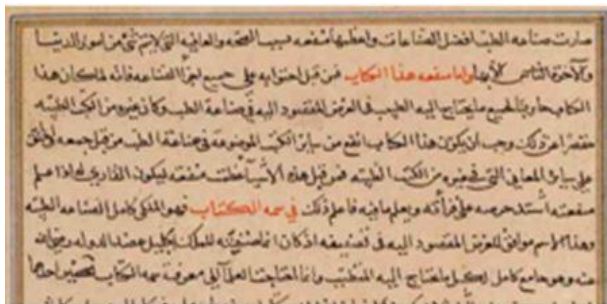 صارت صناعه الطب افضل الصناعات واعظمها منفعه بسبب الصحه والعافيه التى لا يتم شئ من امور الدنيا
والآخرة للناس الا بها واما منفعه هذا الكتاب فمن قبل احتوايه على جميع اجزآ الصناعه فانه لما كان هذا
الكتاب حاويا لجميع ما يحتاج اليه الطبيب فى الغرض المقصود اليه فى صناعة الطب وكان غيره من الكتب الطبيه
مقصرا عن ذلك وجب ان يكون هذا الكتاب انفع من سائر الكتب الموضوعه فى صناعة الطب من قبل جمعه
على سائر المعانى التى فى غيره من الكتب الطبيه فمن قبل هذه الاشيآ عظمت منفعته ليكون القارئ له اذا علم
منفعته اشتد حرصه على قرأته ويعلم ما فيه فاعلم ذلك فى سمه الكتاب فهو الملكى كامل الصناعه الطبيه
وهذا الاسم موافق للغرض المقصود اليه فى تصنيفه اذ كان انما صنفته للملك الجليل عضد الدوله رضى الله
عنه وهو جامع كامل لكل ما يحتاج اليه المتطبب وانما احتاجت العلمآ الى معرفة سمه الكتاب